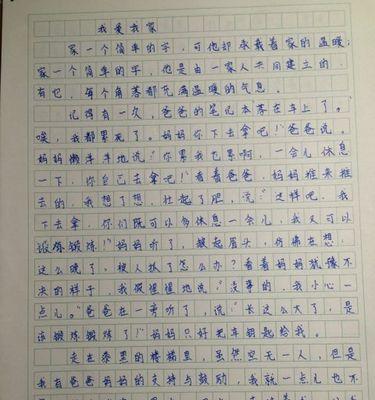 我爱我家
家一个简单的字，可他却承载着家的温暖；
家一个简单的字，他是由一家人共同建立的。
有它，每个角落都充满温暖的气息。
记得有一次，爸爸的笔记本落在车上了。"
唉，我都累死了。妈妈你下去拿吧！"爸爸说。
妈妈懒洋洋地说："你累我也累啊，一会儿休息
一下，你自己去拿吧！"看着爸爸、妈妈推来推
去的，我想了想，壮起了胆，说："这样吧，我
下去拿，你们既可以多休息一会儿，我又可以
锻炼锻炼！"妈妈听了，皱起眉头，仿佛在想：
这么晚了，被人抓了怎么办？看着妈妈犹豫不
决的样子，我慢慢地说："没事的，我小心一
点儿。"爸爸在一旁听了，说："长这么大了，是
该锻炼锻炼了！"妈妈只好把车钥匙给我。
走在漆黑的楼梯里，虽然空无一人，但是
我有爸爸妈妈的支持与鼓励，我就一点儿也不